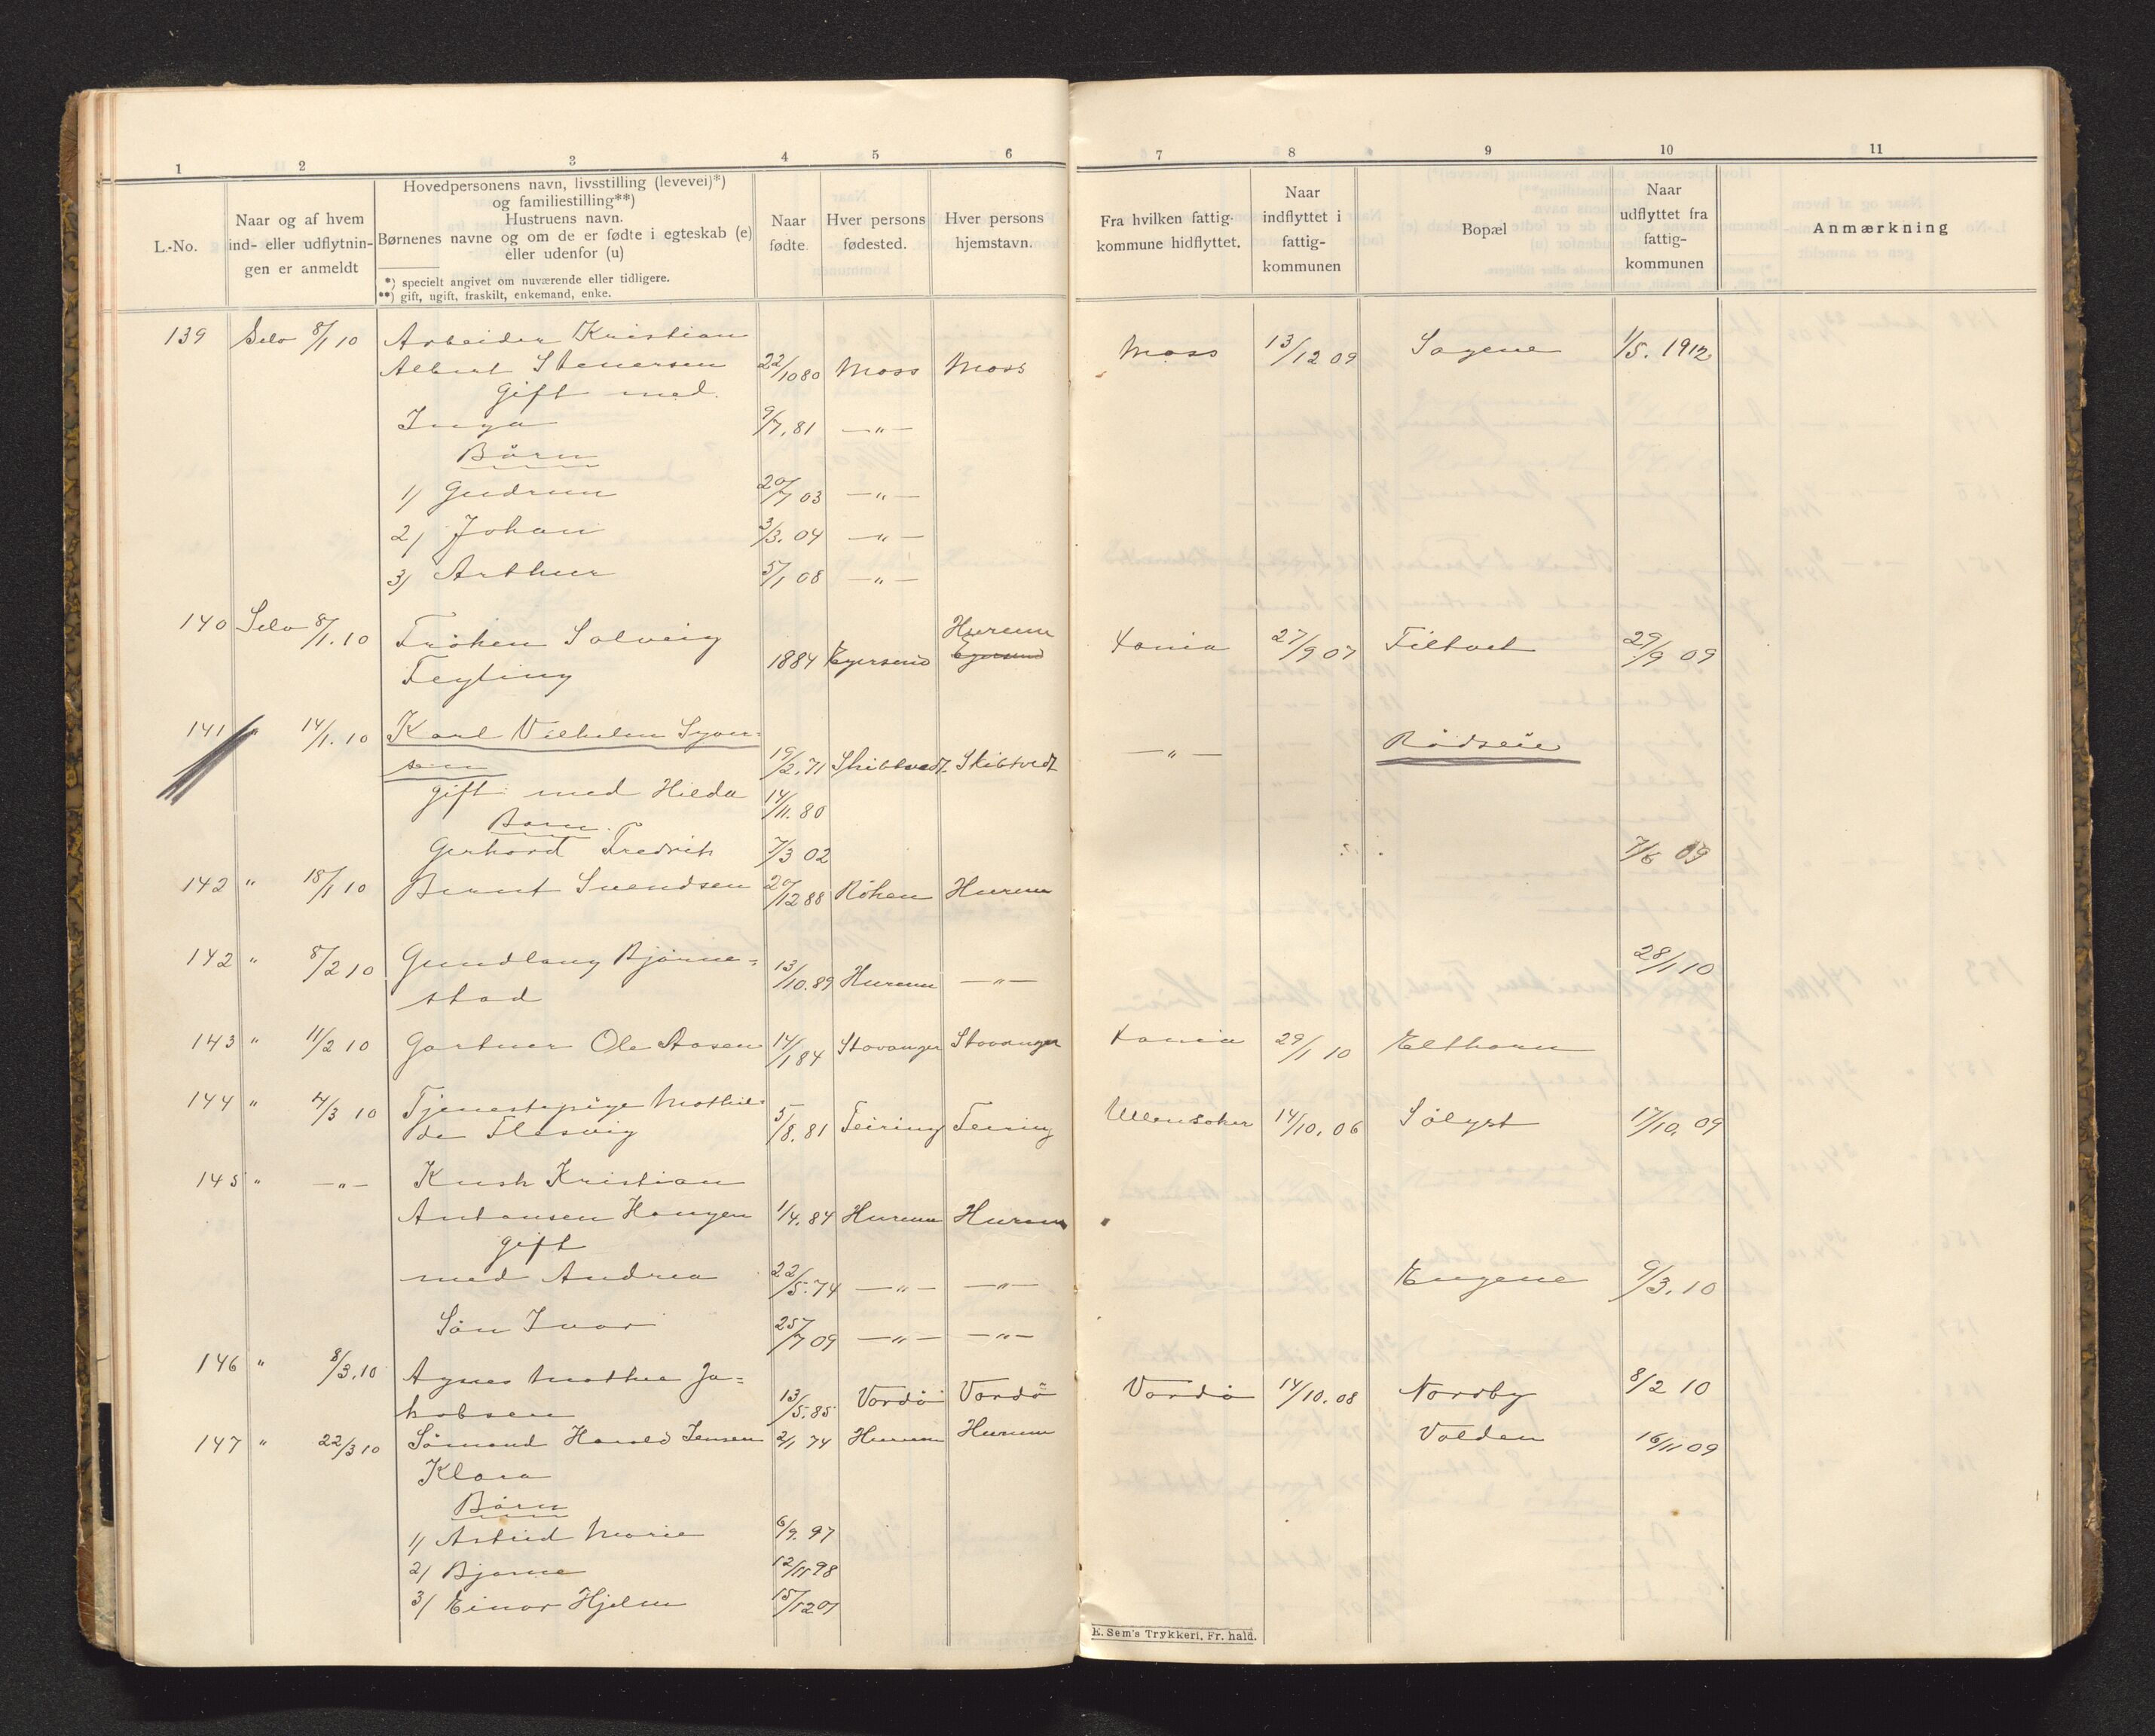 1 2 3 4 5 6 7 8 9 10 11
L.-No.
Naar og af hvem
ind- eller udflytnin-
gen er anmeldt
Hovedpersonens navn, livsstilling (levevei)*)
og familiestilling**)
Hustruens navn.
Børnenes navne og om de er fødte i egteskab (e)
eller udenfor (u)
*) specielt angivet om nuværende eller tidligere.
**) gift, ugift, fraskilt, enkemand, enke.
Naar
fødte.
Hver persons
fødested.
Hver persons
hjemstavn.
Fra hvilken fattig-
kommune hidflyttet.
Naar
indflyttet i
fattig-
kommunen
Bopæl
Naar
udflyttet fra
fattig-
kommunen
Anmærkning
139 Selv 8/1 10 Arbeider Kristian
Albert Stenersen 22/10 80 Moss Moss Moss 13/12 09 Sagene 1/5. 1912
Gift med.
Inga 9/7. 81 —"—
Börn
1) Gudrun 20/7 03 —"—
2) Johan 3/3. 04 —"—
3) Arthur 5/1 08 —"—
140 Selv 8/1. 10 Fröken Solveig Hurum
Teyling 1884 Egersund Egersund 27/9 07 Filtvet 29/9 09
141 14/1. 10 Karl Vilhelm Syver-
sen 19/2. 71 Skibtvedt Skibtvedt —"— Rödseie
gift med Hilda 14/11. 80
Barn.
Gerhard Fredrik 7/3 02
142 " 18/1 10 Bernt Svendsen 20/12 88 Röken Hurum 7/6 09
142 " 8/2 10 Gundlaug Bjørne-
stad 13/10. 89 Hurum —"— 28/1 10
143 " 11/2 10 Gartner Ole Aasen 14/1 84 Stavanger Stavanger 29/1 10 Elthorn
144 " 4/3 10 Tjenestepige Mathil-
de Flesvig 5/8. 81 Feiring Feiring Ullensaker 14/10. 06 Sölyst 17/10. 09
145 " —"— Kusk Kristian
Antonsen Haugen 1/4. 84 Hurum Hurum "
gift
med Andrea 22/5. 74 —"— —"— Engene 9/3. 10
Sön Ivar 25/7 09 —"— —"—
146 " 8/3. 10 Agnes Mathea Ja-
kobsen 13/5. 85 Vardö Vardö Vardö 14/10. 08 Nordby 8/2 10
147 " 22/3 10 Sömand Harald Jensen 2/1 74 Hurum Hurum Volden 16/11 09
Klara
Börn
1) Astrid Marie 6/9. 97
2) Bjarne 12/11 98
3) Einar Hjelm 15/12 01
E. Sem's Trykkeri, Fr. hald.